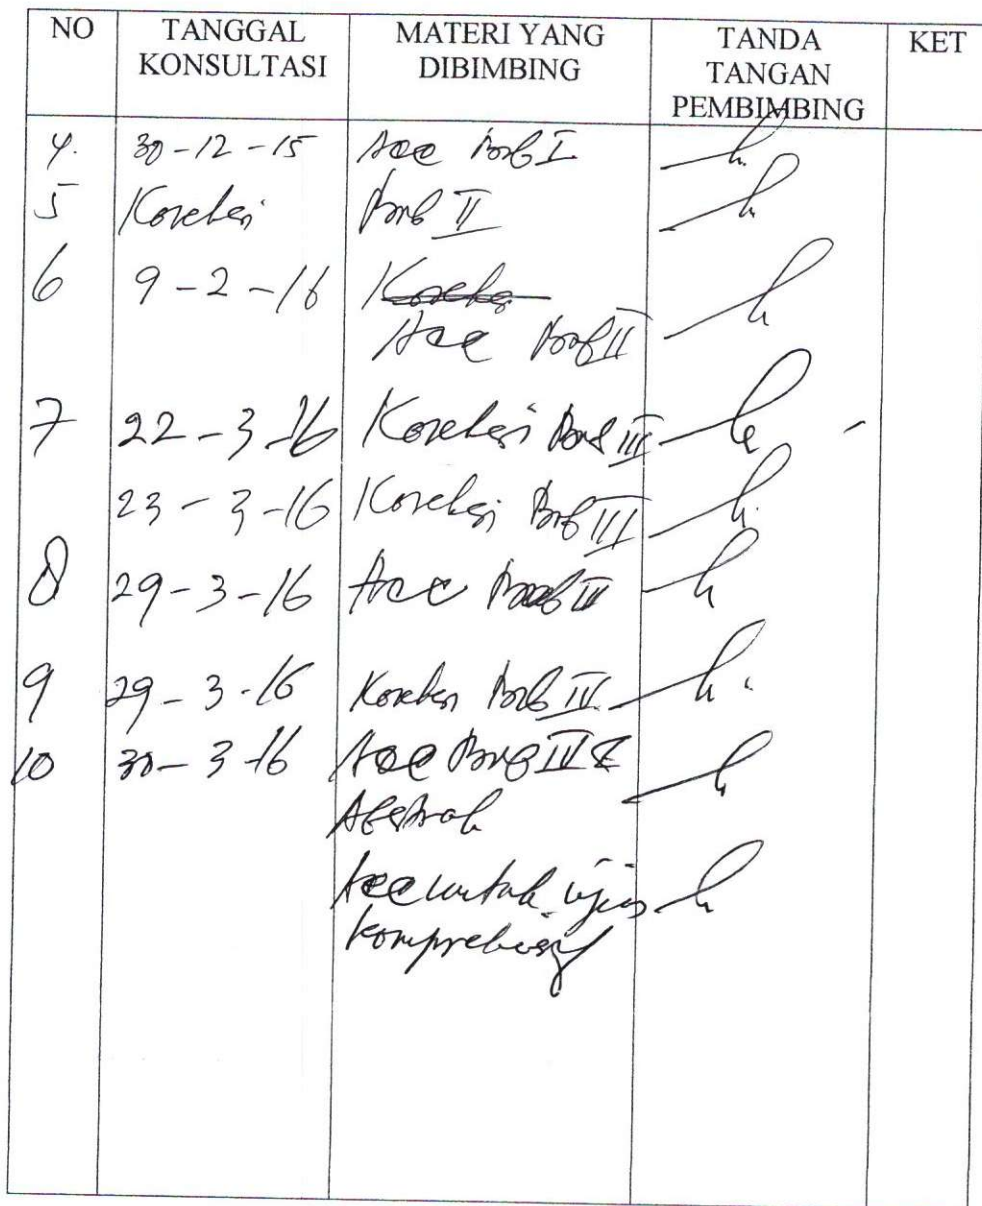 NO TANGGAL KONSULTASI MATERI YANG DIBIMBING TANDA TANGAN PEMBIMBING KET
4. 30-12-15 Acc Bab I
5 Koreksi Bab II
6 9-2-16 Koreksi
Acc Bab II
7 22-3-16 Koreksi Bab III
23-3-16 Koreksi Bab III
8 29-3-16 Acc Bab III
9 29-3-16 Koreksi Bab IV
10 30-3-16 Acc Bab IV &
Abstrak
Acc untuk ujian
komprehensif